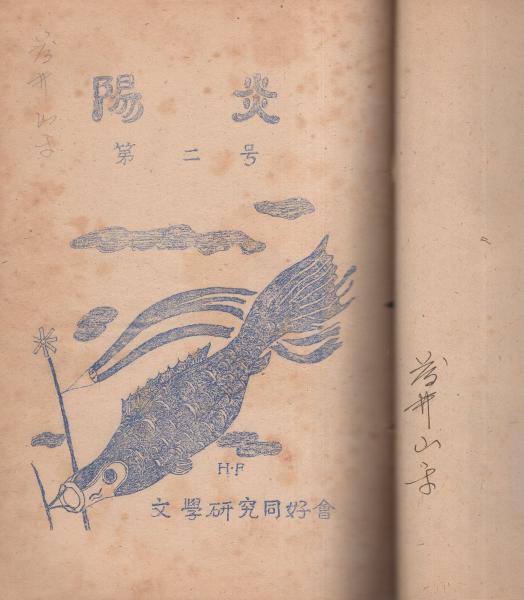 陽炎
第二号
H・F
文學研究同好會
井山
井山